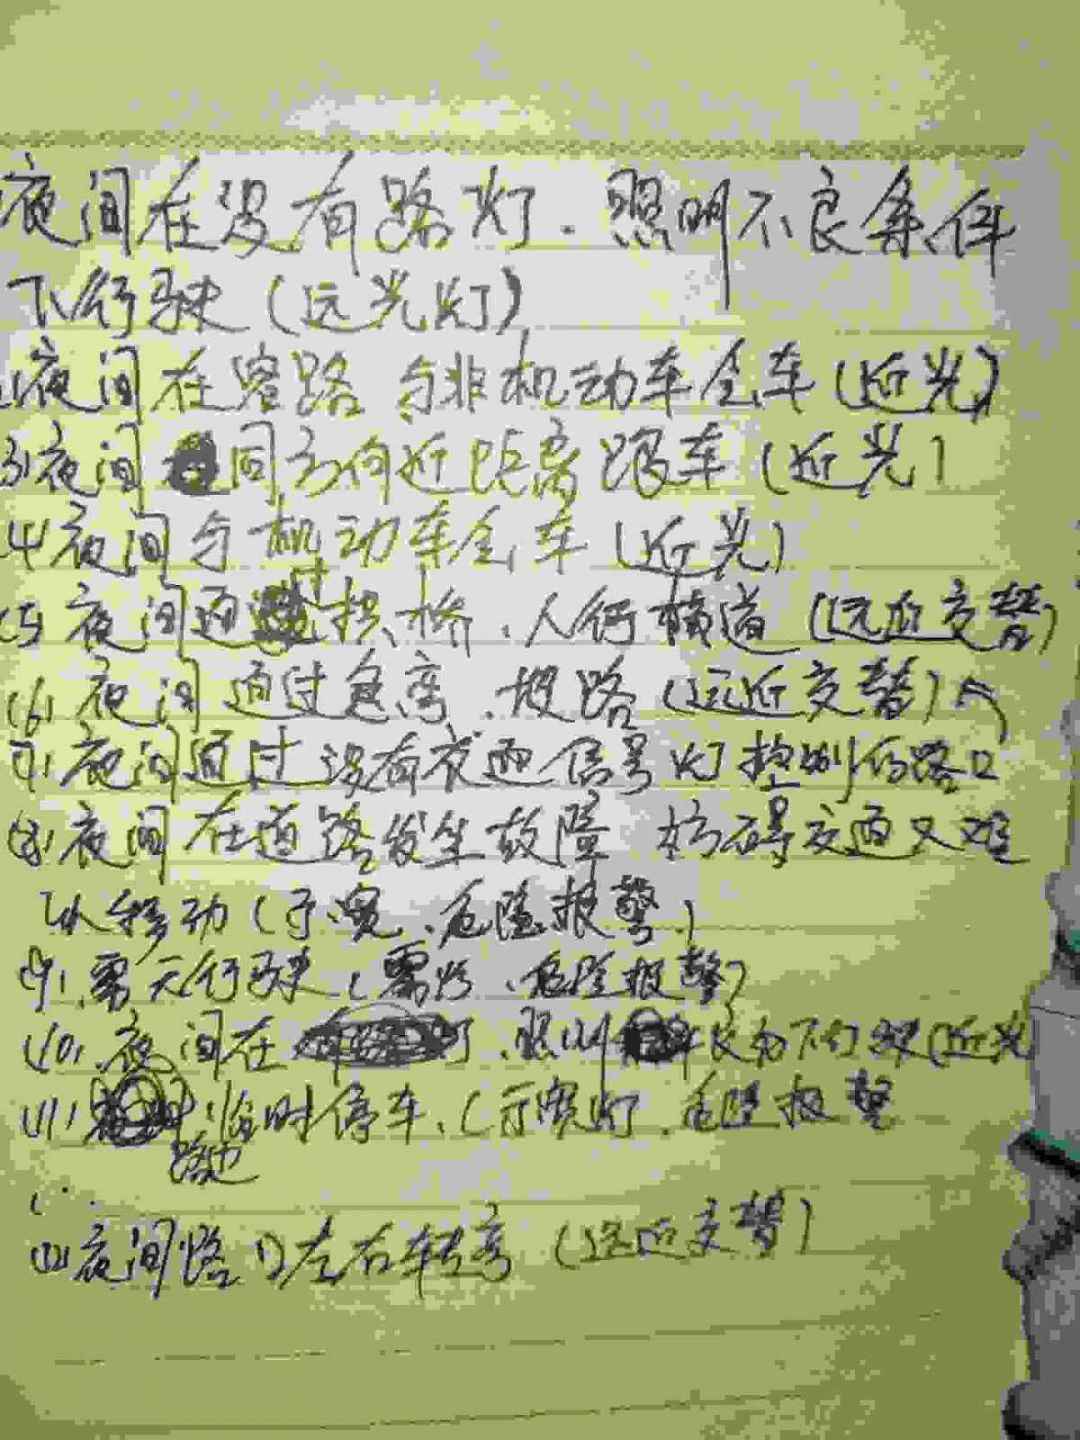 夜间在没有路灯、照明不良条件
下行驶(远光灯)
夜间在窄路 与非机动车会车(近光)
(3)夜间 同方向近距离跟车(近光)
(4)夜间与机动车会车(近光)
(5)夜间通过拱桥、人行横道(远近交替)
(6)夜间通过急弯、坡路(远近交替)
(7)夜间通过没有交通信号灯控制的路口
(8)夜间在道路发生故障 妨碍交通又难
以移动(示宽、危险报警)
(9)雾天行驶(雾灯、危险报警)
(10)夜间在 灯、照明 良好下行驶(近光
(11)路边临时停车、(示宽灯、危险报警
(12)夜间路口左右转弯(远近交替)